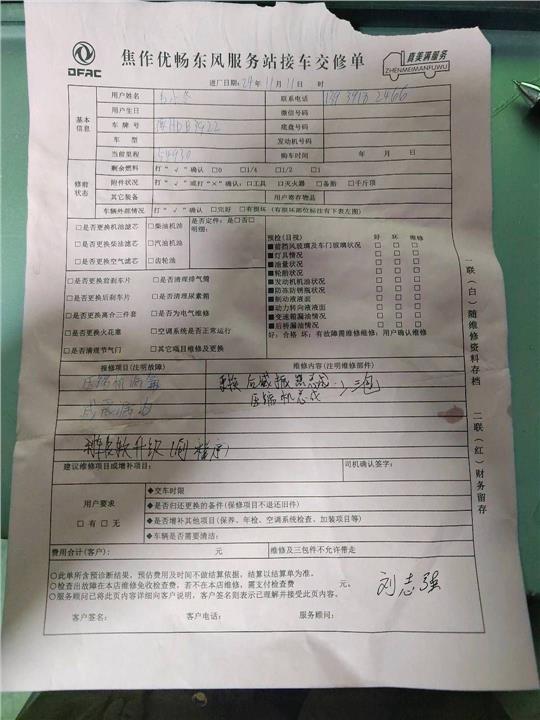 DFAC
焦作优畅东风服务站接车交修单
真美满服务
ZHENMEIMANFUWU
进厂日期：24年11月11日 时
基本信息
用户姓名 联系电话
用户生日 微信号码
车牌号 底盘号码
车型 发动机号码
当前里程 54930 购车时间 年 月 日
修前状态
剩余燃料 打“√”确认 □0 □1/4 □1/2 □1
附件状况 打“√”或打“×”确认：□工具 □灭火器 □备胎 □千斤顶
其它装备 用户寄存物品
车辆外部情况 打“√”确认 □完好 □有损坏（有损坏部位标注有下表左图）
□是否更换机油滤芯 □柴油机油 是否定件：是□否□
明细：
□是否更换柴油滤芯 □汽油机油
□是否更换空气滤芯 □齿轮油
□是否更换前刹车片 □是否清理排气筒
□是否更换后刹车片 □是否清理尿素箱
□是否更换离合三件套 □是否为电气维修
□是否更换火花塞 □空调系统是否正常运行
□是否清理节气门 □其它项目维修及更换
预检(目视) 好 坏 维修
■前挡风玻璃及车门玻璃状况 □ □ □
■灯具情况 □ □ □
■油量状况 □ □ □
■轮胎状况 □ □ □
■发动机机油情况 □ □ □
■防冻防锈瓶状况 □ □ □
■制动液液面 □ □ □
■动力转向液液面 □ □ □
■变速箱漏油情况 □ □ □
■后桥漏油情况 □ □ □
好：合格 坏：有故障需维修维修：用户确认维修
报修项目(注明故障) 维修内容(注明维修部件)
更换后减振器总成 三包
压缩机总成
升级
建议维修项目或增补项目： 司机确认签字：
用户要求
□有 □无
◆交车时限
◆是否归还更换的备件(保修项目不退还旧件)
◆是否增补其他项目(保养、年检、空调系统检查、加装项目等)
◆车辆是否需要清洁：
费用合计(客户) 元 维修及三包件不允许带走
○此单所含预诊断结果，预估费用及时间不做结算依据，结算以结算单为准。
○检查出故障在本店维修免收检查费，若不在本店维修，需支付检查费 元。
○服务顾问已将此页内容详细向客户说明，客户签名则表示已理解并接受此页内容。
刘志强
客户签名： 客户电话： 服务顾问：
一联(白)随维修资料存档 二联(红)财务留存